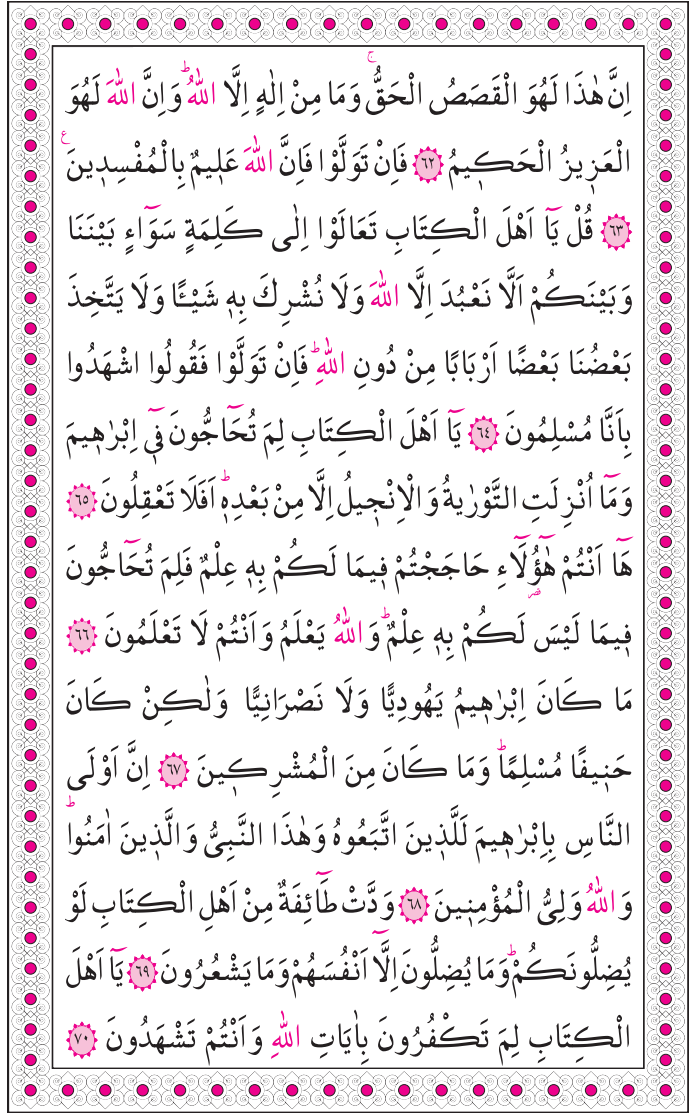 اِنَّ هٰذَا لَهُوَ الْقَصَصُ الْحَقُّۚ وَمَا مِنْ اِلٰهٍ اِلَّا اللّٰهُۜ وَاِنَّ اللّٰهَ لَهُوَ
الْعَز۪يزُ الْحَك۪يمُ ﴿٦٢﴾ فَاِنْ تَوَلَّوْا فَاِنَّ اللّٰهَ عَل۪يمٌ بِالْمُفْسِد۪ينَ۟
﴿٦٣﴾ قُلْ يَٓا اَهْلَ الْكِتَابِ تَعَالَوْا اِلٰى كَلِمَةٍ سَوَٓاءٍ بَيْنَنَا
وَبَيْنَكُمْ اَلَّا نَعْبُدَ اِلَّا اللّٰهَ وَلَا نُشْرِكَ بِه۪ شَيْـًٔا وَلَا يَتَّخِذَ
بَعْضُنَا بَعْضًا اَرْبَابًا مِنْ دُونِ اللّٰهِۜ فَاِنْ تَوَلَّوْا فَقُولُوا اشْهَدُوا
بِاَنَّا مُسْلِمُونَ ﴿٦٤﴾ يَٓا اَهْلَ الْكِتَابِ لِمَ تُحَٓاجُّونَ ف۪ٓي اِبْرٰه۪يمَ
وَمَٓا اُنْزِلَتِ التَّوْرٰيةُ وَالْاِنْج۪يلُ اِلَّا مِنْ بَعْدِه۪ۜ اَفَلَا تَعْقِلُونَ ﴿٦٥﴾
هَٓا اَنْتُمْ هٰٓؤُ۬لَٓاءِ حَاجَجْتُمْ ف۪يمَا لَكُمْ بِه۪ عِلْمٌ فَلِمَ تُحَٓاجُّونَ
ف۪يمَا لَيْسَ لَكُمْ بِه۪ عِلْمٌۜ وَاللّٰهُ يَعْلَمُ وَاَنْتُمْ لَا تَعْلَمُونَ ﴿٦٦﴾
مَا كَانَ اِبْرٰه۪يمُ يَهُودِيًّا وَلَا نَصْرَانِيًّا وَلٰكِنْ كَانَ
حَن۪يفًا مُسْلِمًاۜ وَمَا كَانَ مِنَ الْمُشْرِك۪ينَ ﴿٦٧﴾ اِنَّ اَوْلَى
النَّاسِ بِاِبْرٰه۪يمَ لَلَّذ۪ينَ اتَّبَعُوهُ وَهٰذَا النَّبِيُّ وَالَّذ۪ينَ اٰمَنُواۜ
وَاللّٰهُ وَلِيُّ الْمُؤْمِن۪ينَ ﴿٦٨﴾ وَدَّتْ طَٓائِفَةٌ مِنْ اَهْلِ الْكِتَابِ لَوْ
يُضِلُّونَكُمْۜ وَمَا يُضِلُّونَ اِلَّٓا اَنْفُسَهُمْ وَمَا يَشْعُرُونَ ﴿٦٩﴾ يَٓا اَهْلَ
الْكِتَابِ لِمَ تَكْفُرُونَ بِاٰيَاتِ اللّٰهِ وَاَنْتُمْ تَشْهَدُونَ ﴿٧٠﴾